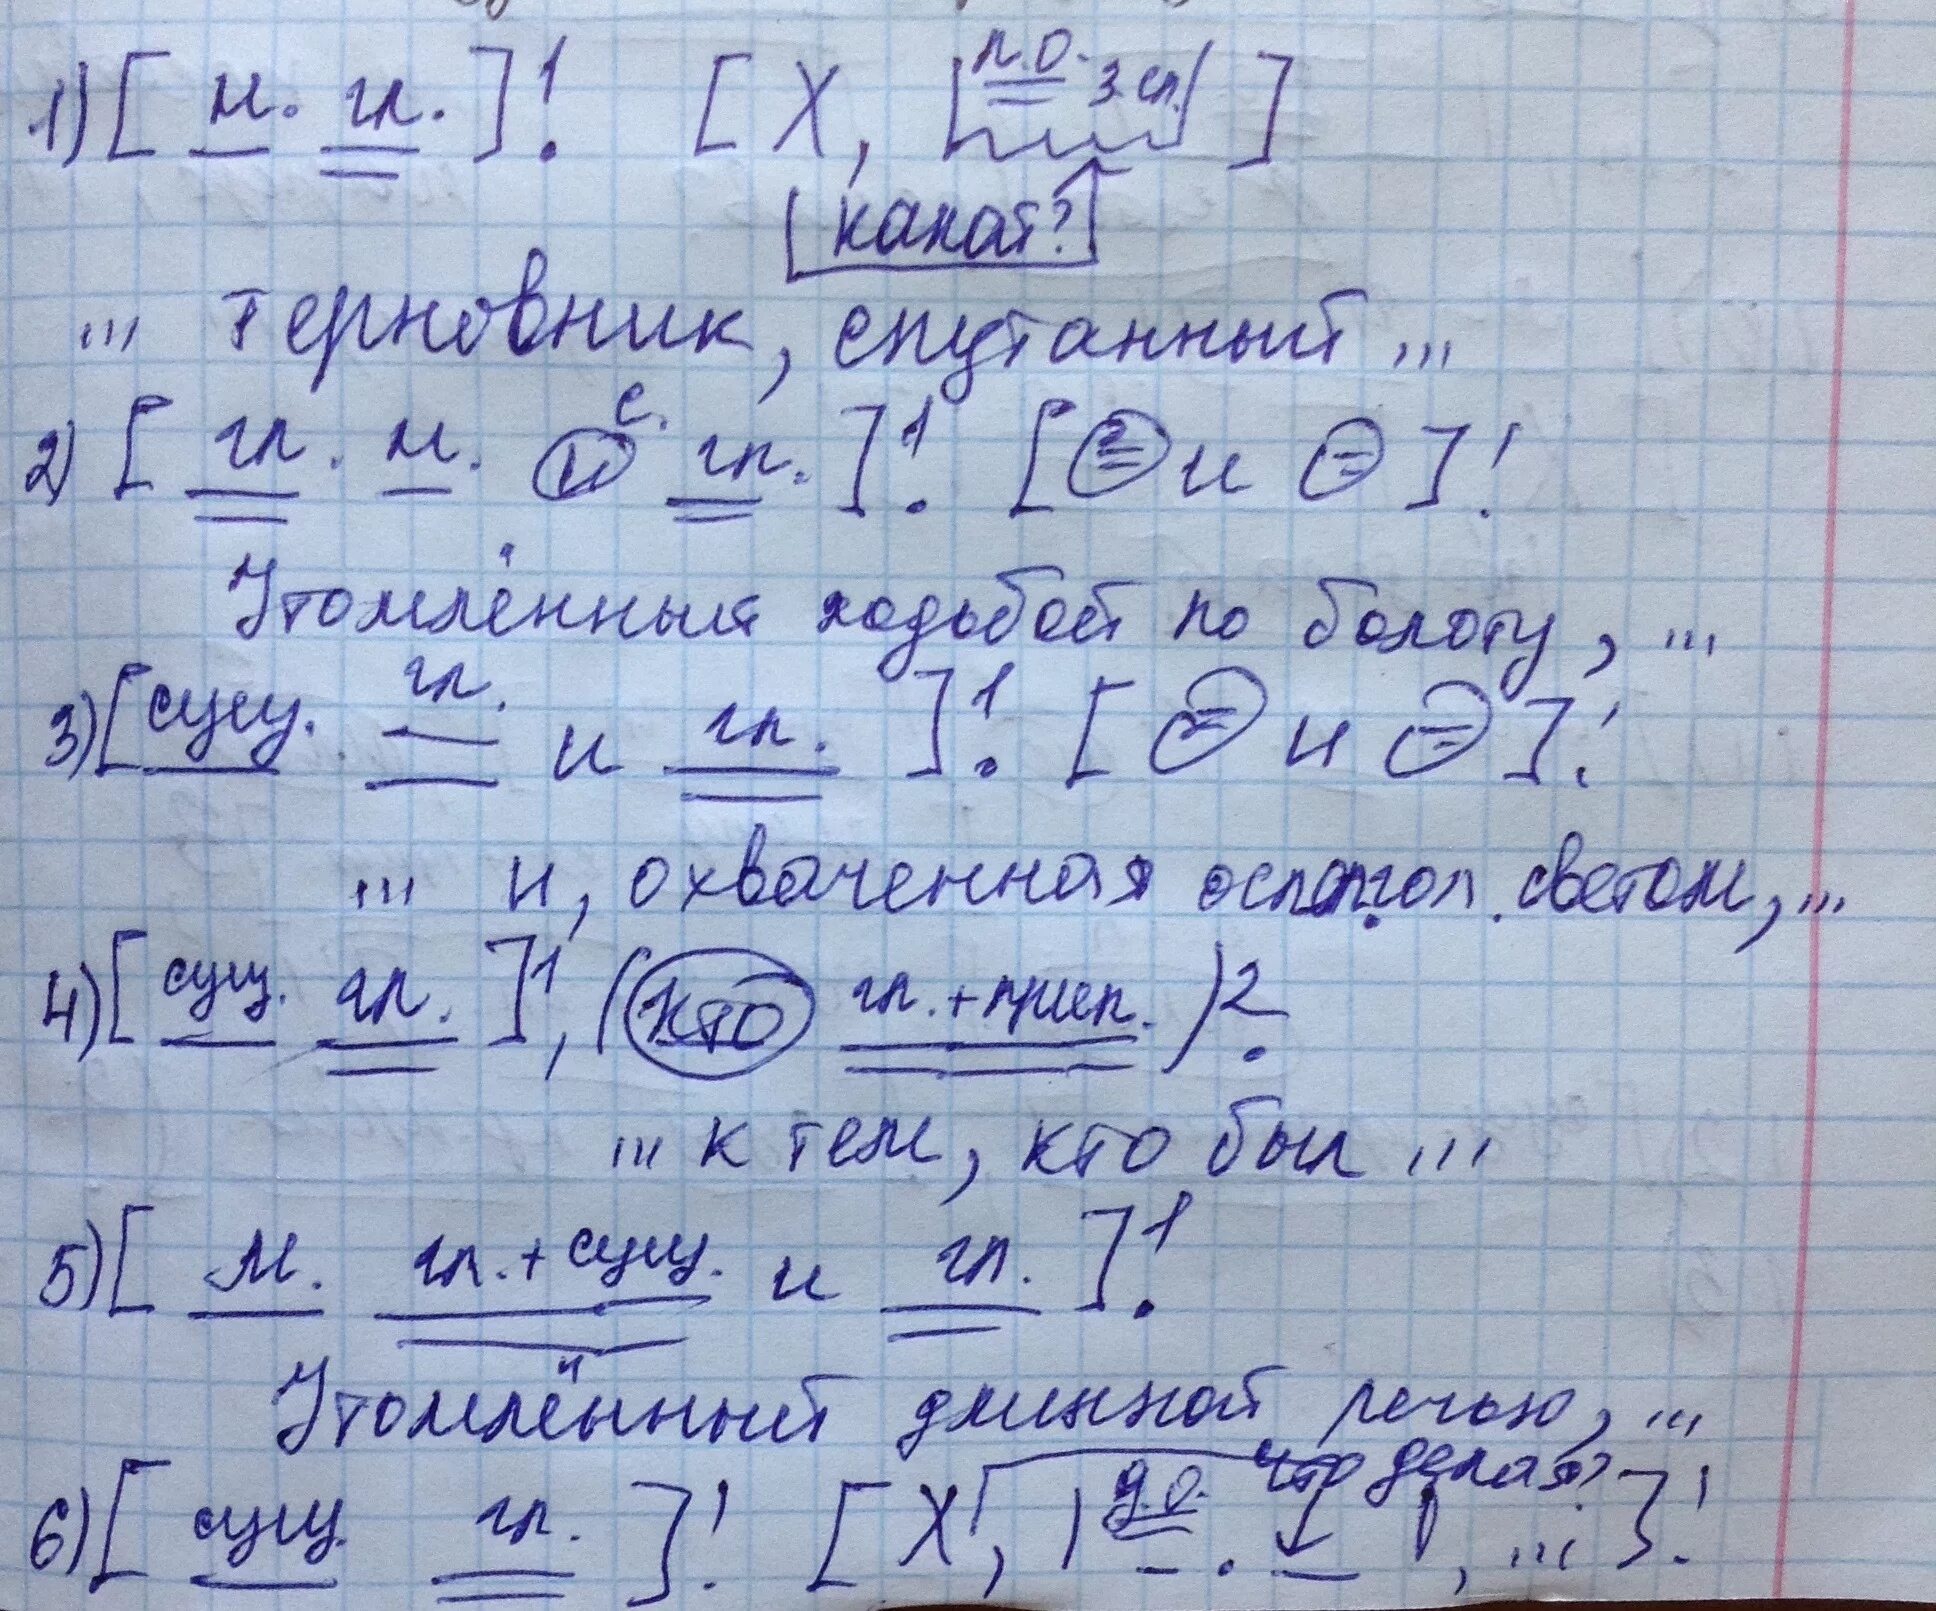 1) [ м. гл. ]¹. [ Х, | п.о. 3 сл. | ]
какая?
... терновник, спутанный ...
2) [ гл. м. и с. гл. ]¹. [ = и = ]!
Утомлённый ходьбой по болоту, ...
3) [сущ. гл. и гл. ]¹. [ = и = ]!
... и, охваченная светом, ...
4) [ сущ. гл. ]¹, ( кто гл. + прил. )².
... к тем, кто был ...
5) [ м. гл. + сущ. и гл. ]¹.
Утомлённый длинной речью, ...
6) [ сущ. гл. ]¹. [ Х, | д.о. что делая? |, ... ]!